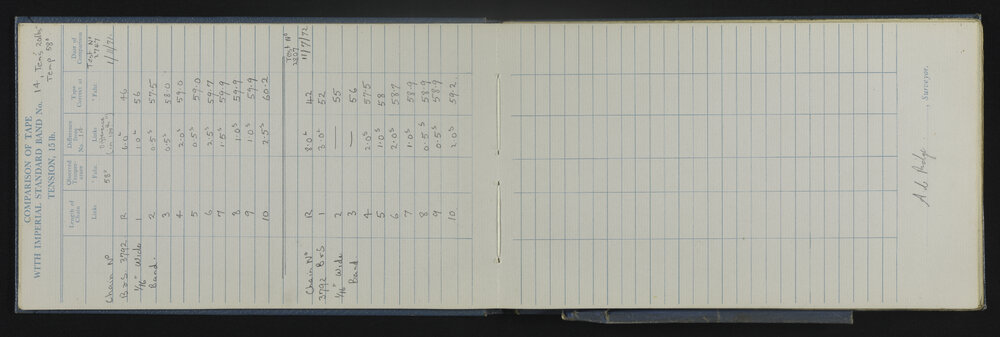 COMPARISON OF TAPE
WITH IMPERIAL STANDARD BAND No. 14, Tens 20lbs
TENSION, 15 lb. Temp 58°
Length of Chain Observed Temperature Difference from No. 14 Tape Correct at Date of Comparison
Links ° Fahr. Links ° Fahr.
Chain No 58° Difference Test No
B&S 3792 R 6.0 46 1/11/71
1/16" Wide 1 1.0 56
Band. 2 0.5 57.5
3 0.5 58.0
4 2.0 59.0
5 0.5 59.0
6 2.5 59.7
7 1.5 59.9
8 1.0 59.9
9 1.0 59.9
10 2.5 60.2
Chain No R 8.0 42 Test No
3792 B&S 1 3.0 52 11/7/72
1/16" Wide 2 — 55
Band 3 — 56
4 2.0 57.5
5 1.0 58
6 2.0 58.7
7 1.0 58.9
8 0.5 58.9
9 0.5 58.9
10 2.0 59.2
, Surveyor.